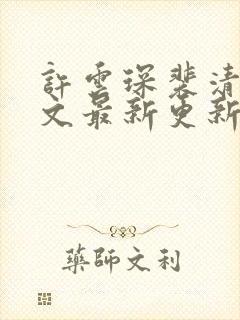 許雲琛裴清
文最新更新
藥師文利